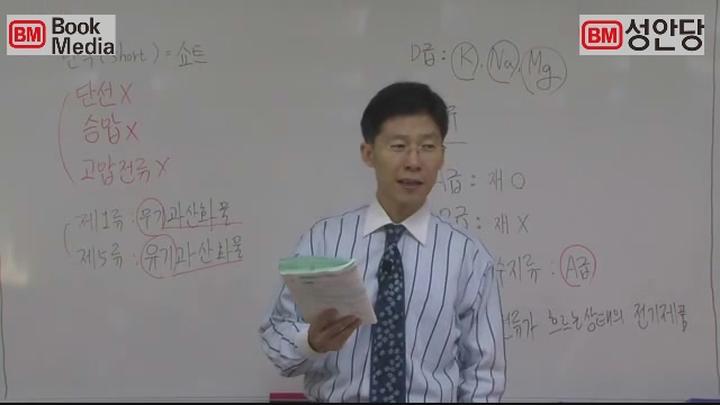 BM Book Media
BM 성안당
(short) = 쇼트
단선 X
승압 X
고압전류 X
제1류 : 무기과산화물
제5류 : 유기과산화물
D급 : K, Na, Mg
급 : 재 O
급 : 재 X
수지류 : A급
전류가 흐르는상태의 전기제품